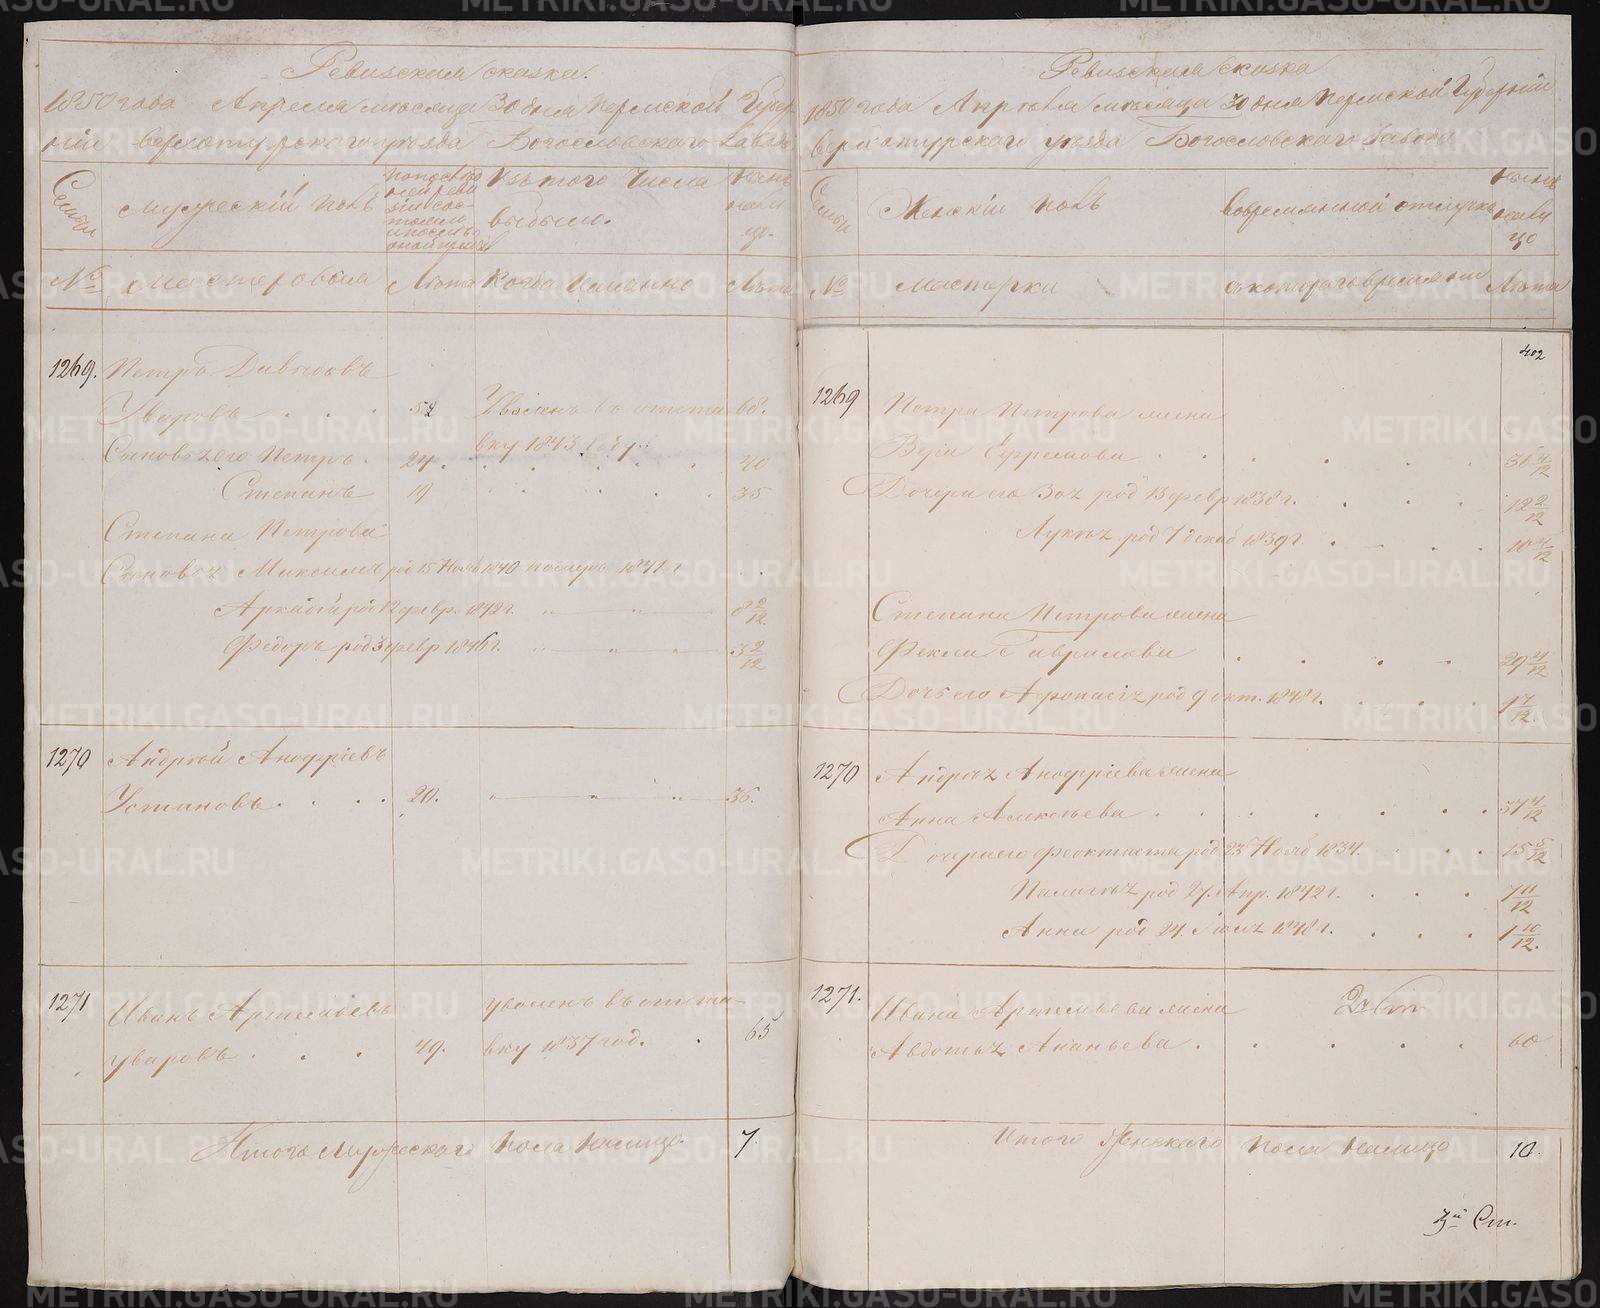 Ревизская сказка.
1850 года Апреля месяца 30 дня Пермской Губер
ніи Верхотурского уезда Богословского Завода
Семьи
Мужескій полъ
по послѣдней ревизіи состояло и послѣ оной прибыло
Изъ того числа выбыло.
Нынѣ налицо.
№ Мастеровыя Лѣта Когда Именно Лѣта
1269. Петръ Давыдовъ
Уваровъ . . . 52 Уволенъ въ отста 68.
вку 1843 году.
Сыновья его Петръ . 24. 40
Степанъ 19 35
Степана Петрова
Сыновья Максимъ род 15 Нояб 1840 померъ 1841 г
Аркадій род 12 февр. 1842 г. 8 2/12
Федоръ род 3 февр 1846 г. 3 2/12
1270 Андрей Анофріевъ
Устиновъ . . . . 20. 36.
1271 Иванъ Артемьевъ уволенъ въ отста-
Уваровъ . . . 49. вку 1837 год. . 65
Итого Мужескаго пола налицо. 7.
Ревизская сказка
1850 года Апрѣля месяца 30 дня Пермской Губерніи
Верхотурского уѣзда Богословского Завода
Семьи
Женскій полъ
во временной отлучкѣ
Нынѣ налицо
№ Мастерки съ котораго времени Лѣта
402
1269 Петра Петрова жена
Вера Ефремова 36 4/12
Дочери его Зоя род 13 февр 1838 г. 12 2/12
Лукея род 7 декаб 1839 г. 10 4/12
Степана Петрова жена
Фекла Гаврилова 29 4/12
Дочь его Афонасія род 9 окт. 1848 г. 1 7/12.
1270 Андрея Анофріева жена
Анна Алексѣева 37 4/12
Дочери его Феоктиста род 23 Нояб 1834. 15 5/12
Палагея род 27. Апр. 1842 г. 7 11/12
Анна род 24. Іюля 1848 г. 1 10/12.
1271. Ивана Артемьева жена
Авдотья Ананьева 60
Итого Женскаго пола налицо 10.
3й Ст.